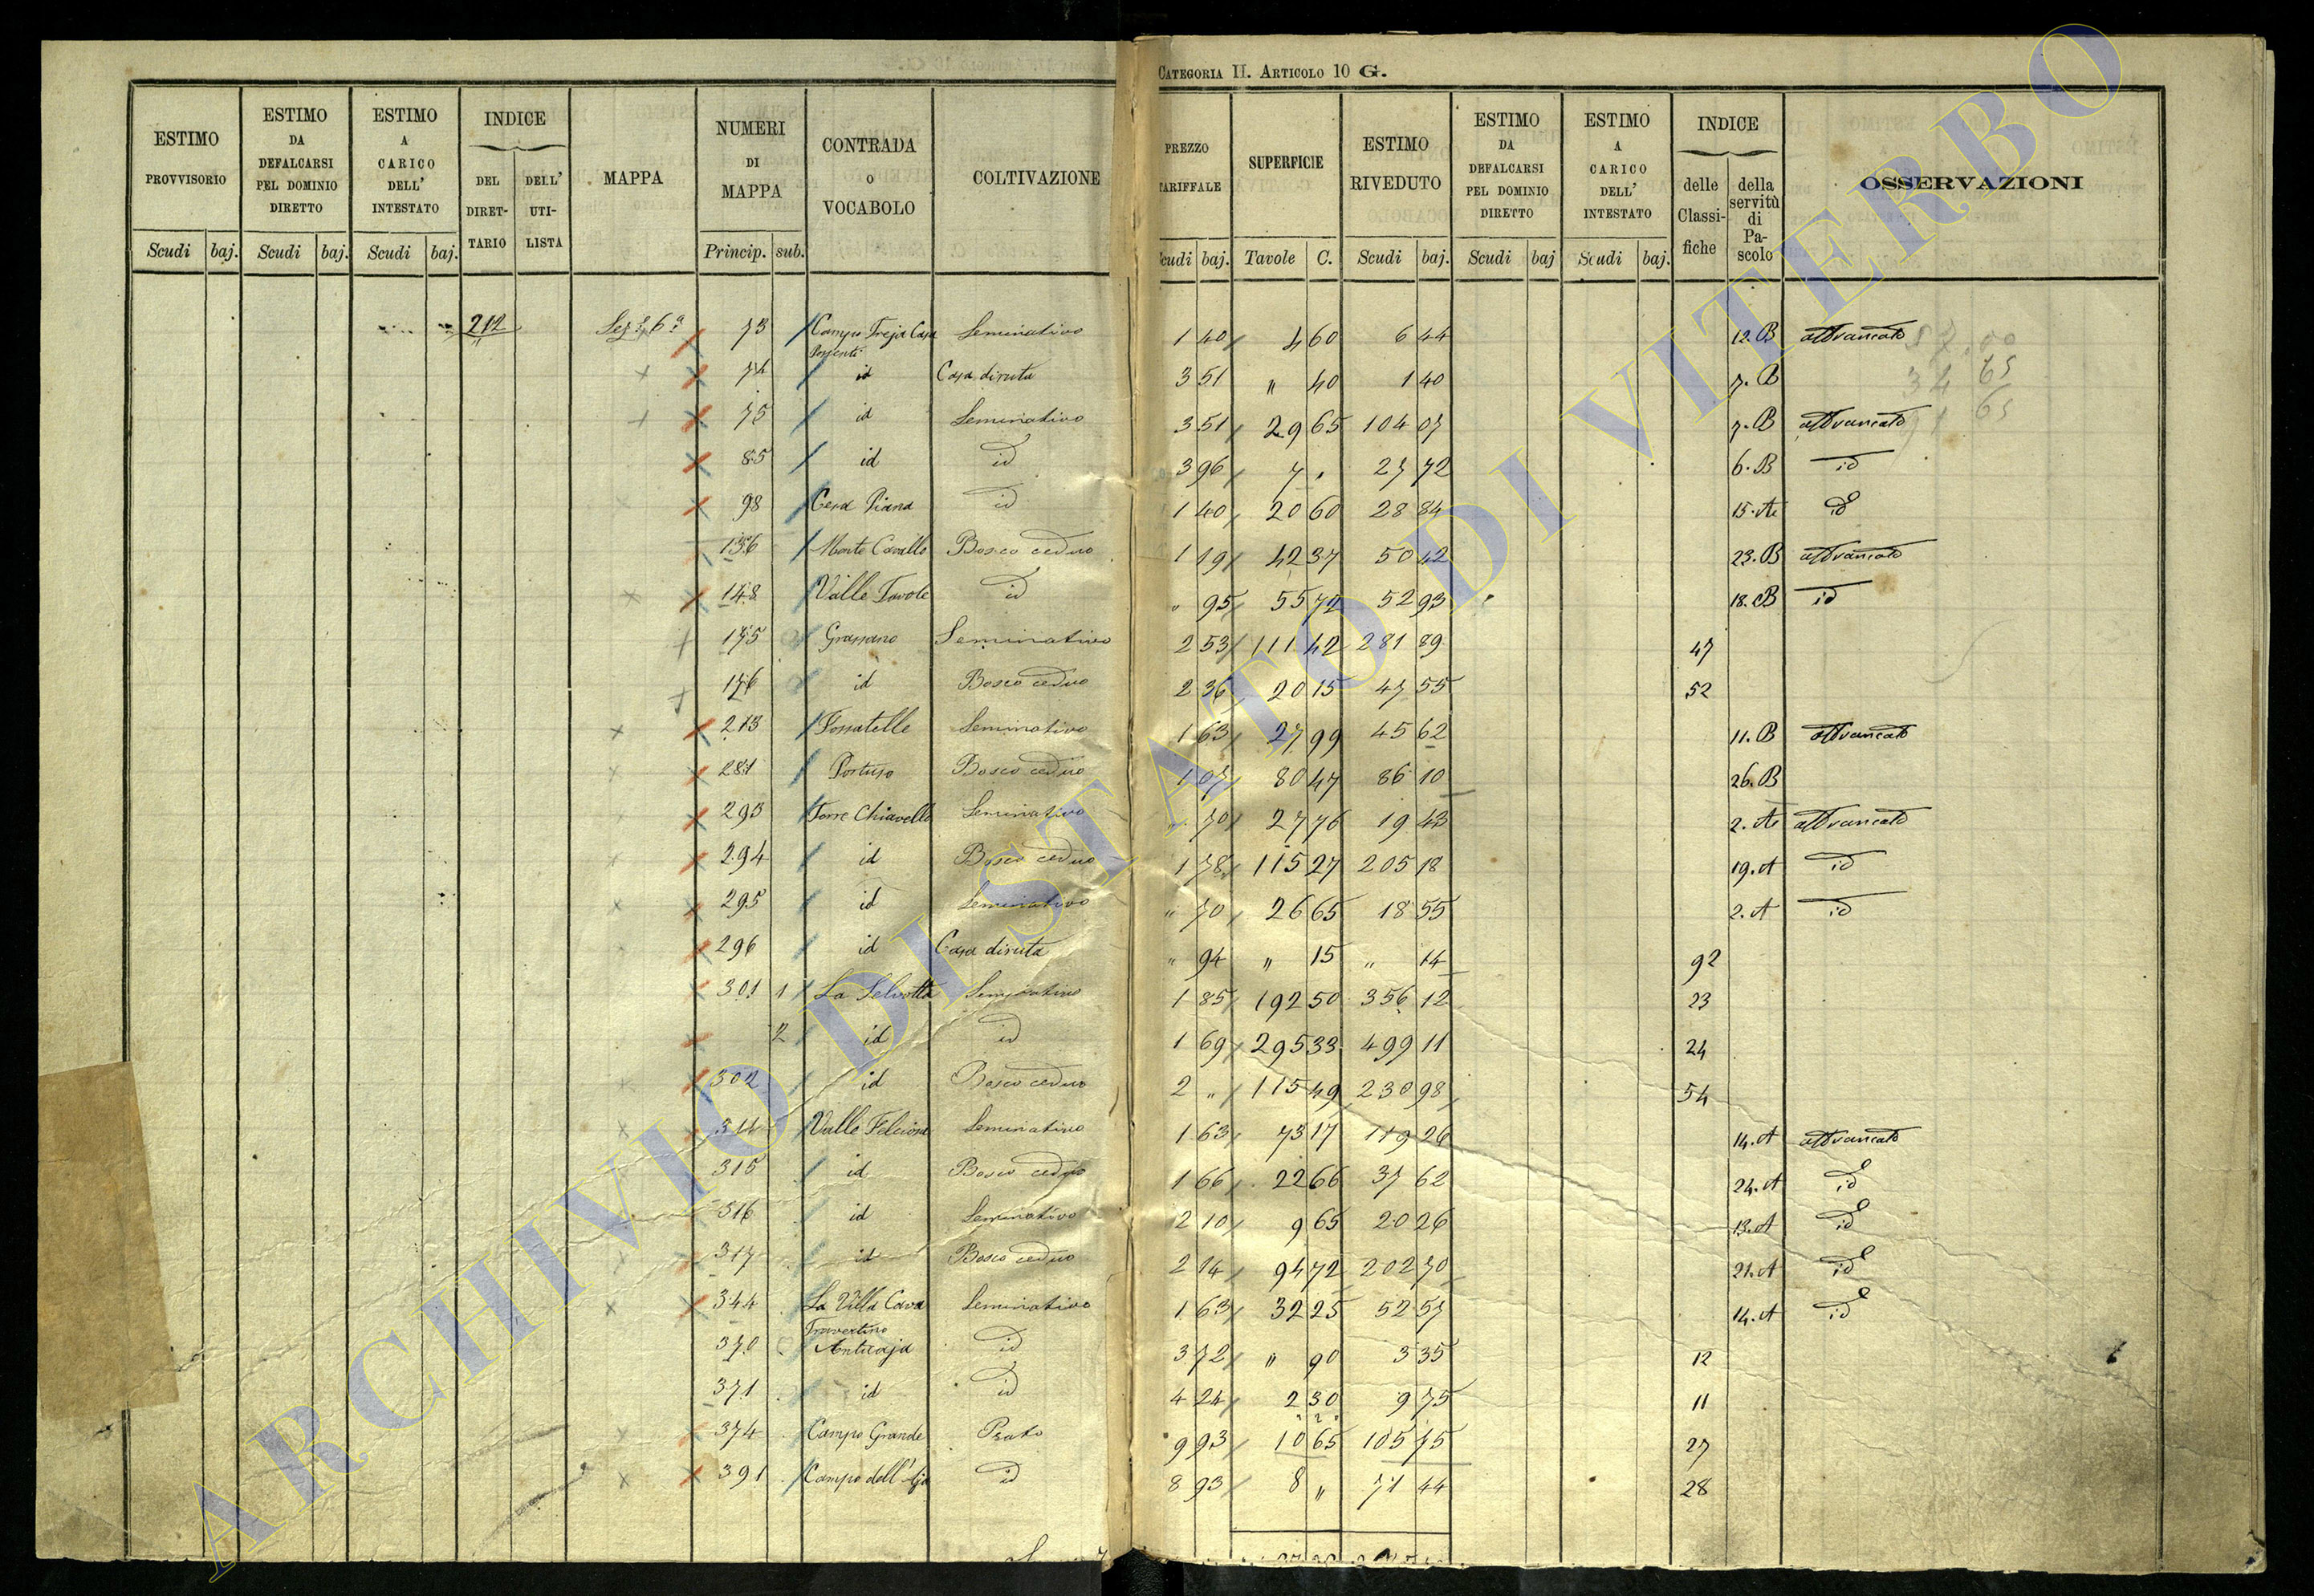 CATEGORIA II. ARTICOLO 10 G.
ESTIMO PROVVISORIO
ESTIMO DA DEFALCARSI PEL DOMINIO DIRETTO
ESTIMO A CARICO DELL' INTESTATO
INDICE
DEL DIRET- TARIO
DELL' UTI- LISTA
MAPPA
NUMERI DI MAPPA
CONTRADA O VOCABOLO
COLTIVAZIONE
PREZZO TARIFFALE
SUPERFICIE
ESTIMO RIVEDUTO
ESTIMO DA DEFALCARSI PEL DOMINIO DIRETTO
ESTIMO A CARICO DELL' INTESTATO
INDICE
delle Classi- fiche
della servitù di Pa- scolo
OSSERVAZIONI
Scudi baj. Scudi baj. Scudi baj. Princip. sub.
Scudi baj. Tavole C. Scudi baj. Scudi baj Scudi baj.
212 Sez.e 6a 73 Campo Treja Casa Seminativo 1 40 4 60 6 44 12. B
74 id Casa diruta 3 51 " 40 1 40 7. B
75 id Seminativo 3 51 29 65 104 07 7. B
85 id id 3 96 7 . 27 72 6. B id
98 Cesa Piana id 1 40 20 60 28 84 15. A id
136 Monte Cavallo Bosco ceduo 1 19 42 37 50 42 23. B
148 Valle Tavole id " 95 55 72 52 93 18. B id
175 Grassano Seminativo 2 53 111 42 281 89 47
176 id Bosco ceduo 2 36 20 15 47 55 52
213 Fossatelle Seminativo 1 63 27 99 45 62 11. B
281 Portuso Bosco ceduo 1 07 80 47 86 10 26. B
293 Torre Chiavello Seminativo " 70 27 76 19 43 2. A
294 id Bosco ceduo 1 78 115 27 205 18 19. A id
295 id Seminativo " 70 26 65 18 55 2. A id
296 id Casa diruta " 94 " 15 " 14 92
301 1 La Selvotta Seminativo 1 85 192 50 356 12 23
2 id id 1 69 295 33 499 11 24
302 id Bosco ceduo 2 " 115 49 230 98 54
314 Valle Felciosa Seminativo 1 63 73 17 119 26 14. A
315 id Bosco ceduo 1 66 22 66 37 62 24. A id
316 id Seminativo 2 10 9 65 20 26 13. A id
317 id Bosco ceduo 2 14 94 72 202 70 21. A id
344 La Villa Cava Seminativo 1 63 32 25 52 57 14. A id
Travertino
370 Anticaja id 3 72 " 90 3 35 12
371 id id 4 24 2 30 9 75 11
374 Campo Grande Prato 9 93 10 65 105 75 27
391 Campo dell' id 8 93 8 " 71 44 28
ARCHIVIO DI STATO DI VITERBO